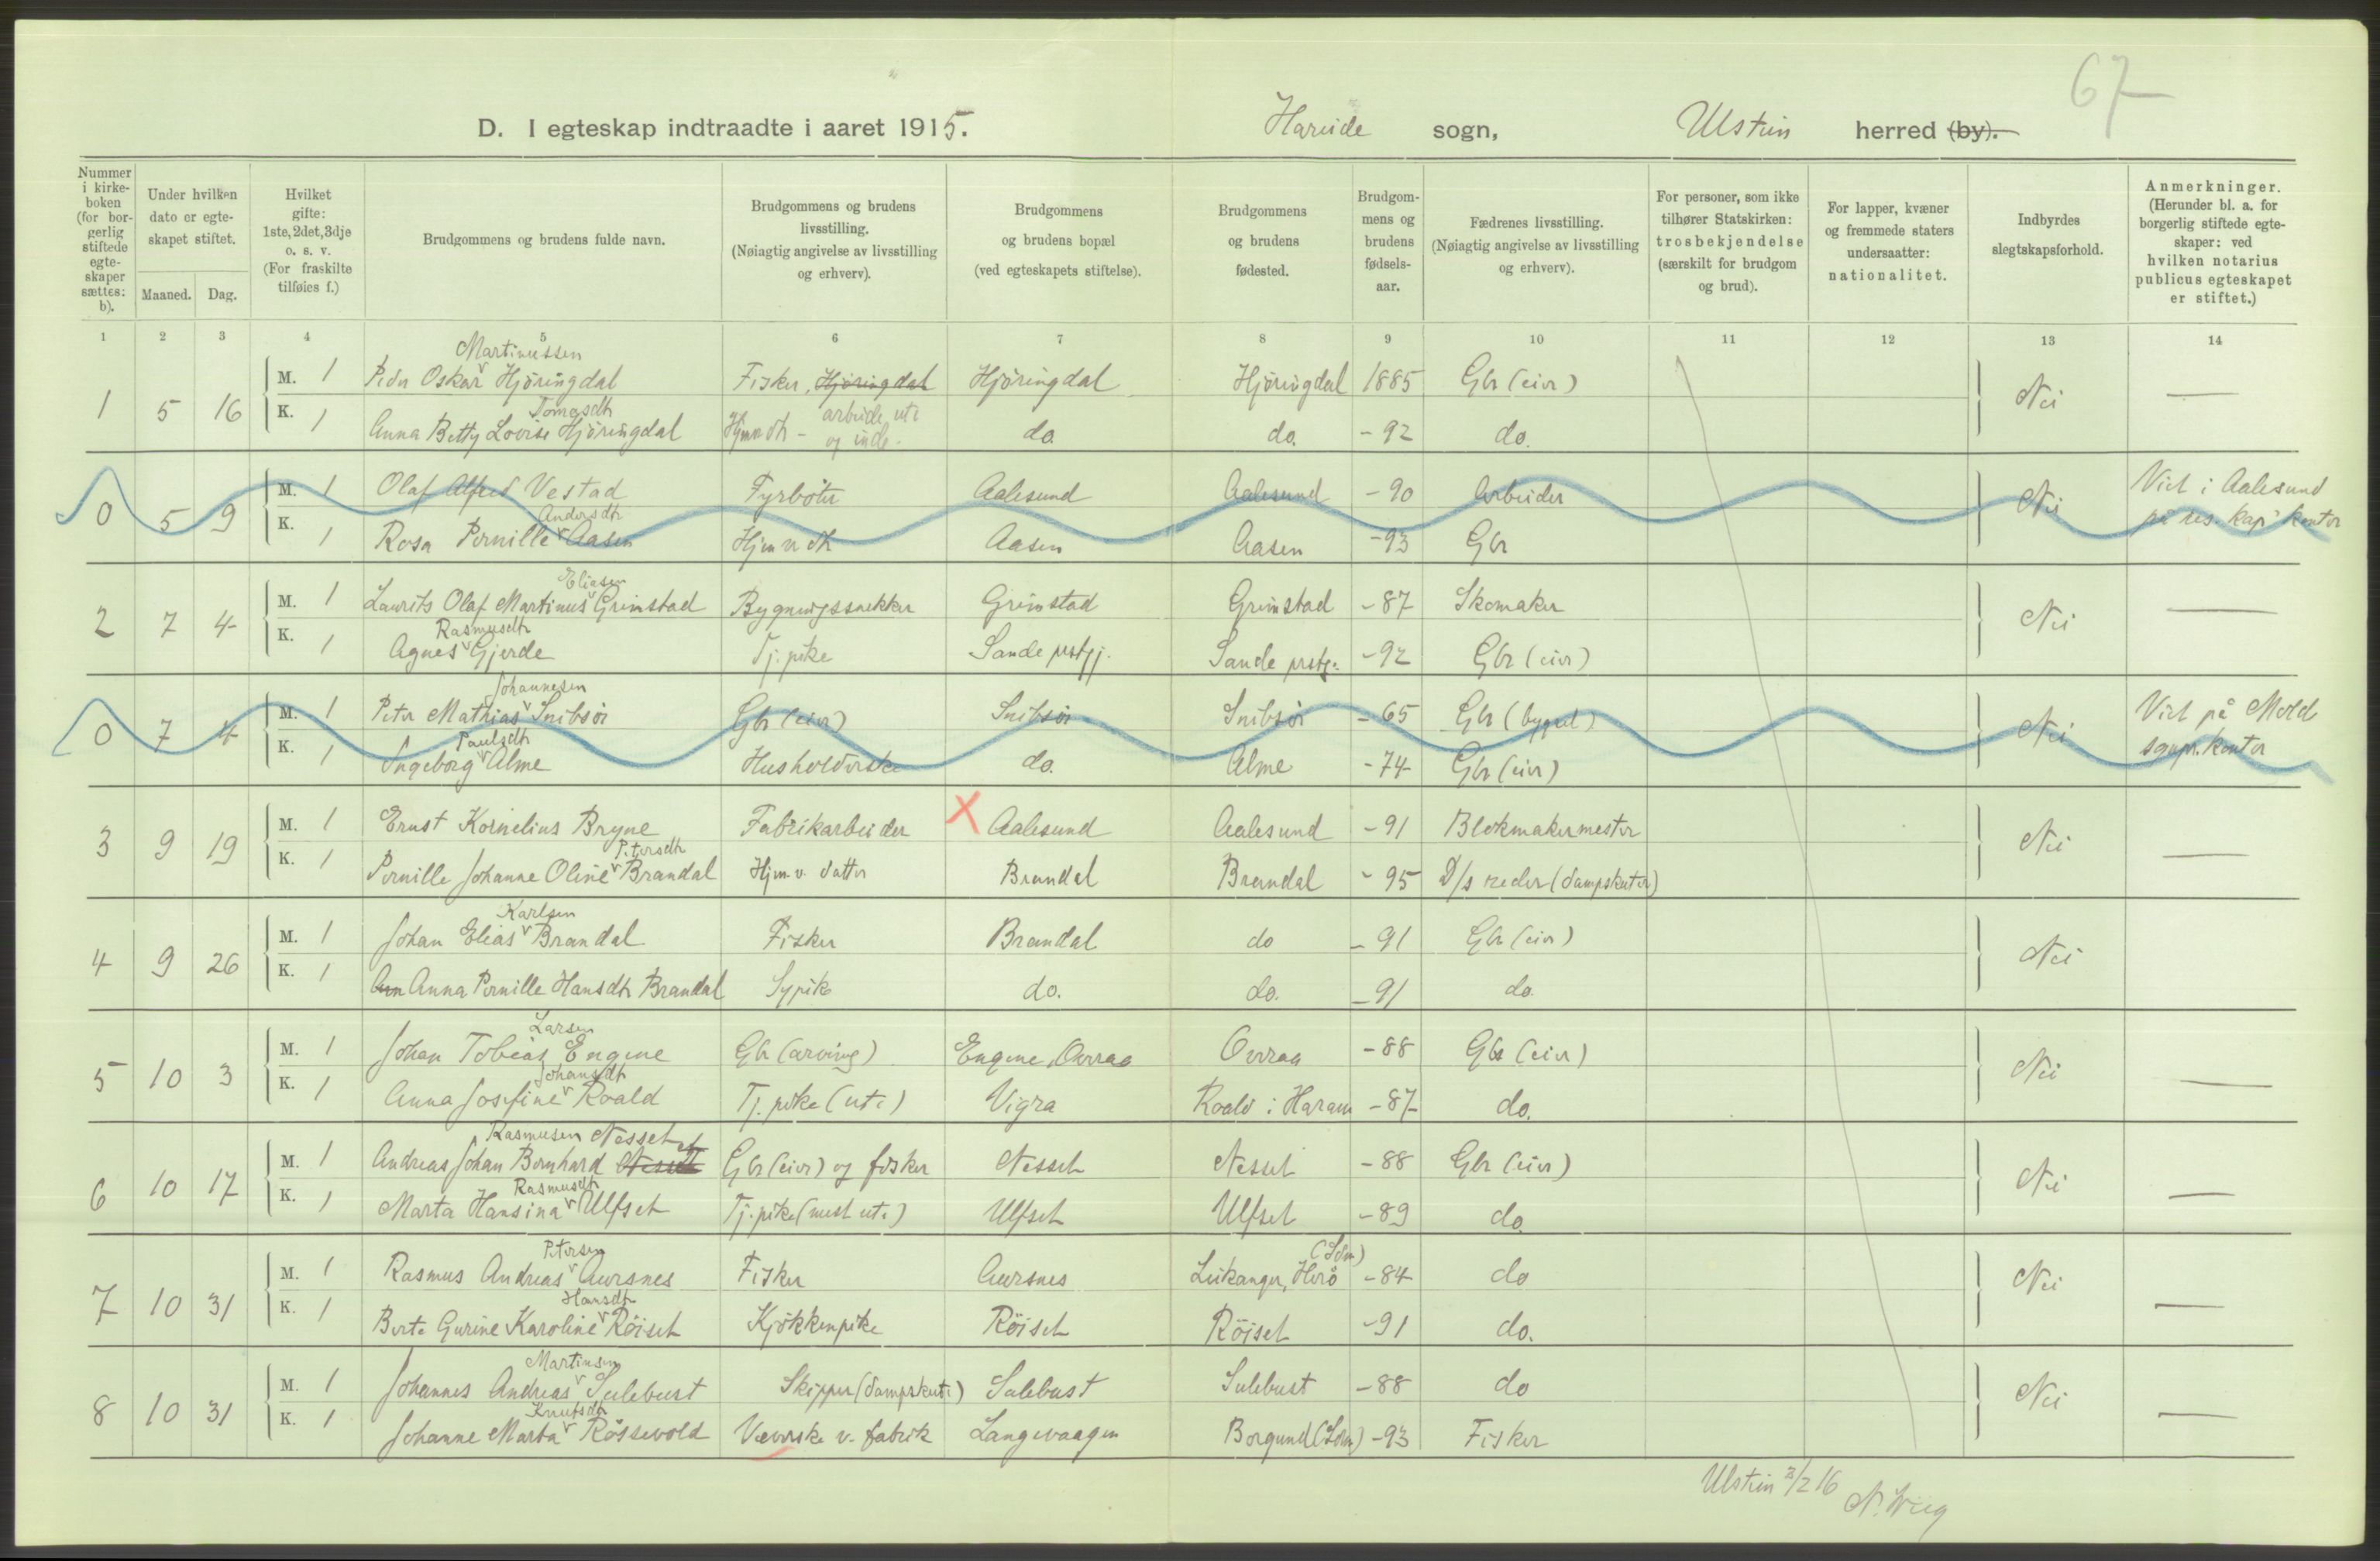 67
D. I egteskap indtraadte i aaret 1915. Hareide sogn, Ulstein herred (by).
Nummer i kirkeboken (for borgerlig stiftede egteskaper sættes: b).
Under hvilken dato er egteskapet stiftet.
Maaned. Dag.
Hvilket gifte: 1ste, 2det, 3dje o. s. v. (For fraskilte tilføies f.)
Brudgommens og brudens fulde navn.
Brudgommens og brudens livsstilling. (Nøiagtig angivelse av livsstilling og erhverv).
Brudgommens og brudens bopæl (ved egteskapets stiftelse).
Brudgommens og brudens fødested.
Brudgommens og brudens fødselsaar.
Fædrenes livsstilling. (Nøiagtig angivelse av livsstilling og erhverv).
For personer, som ikke tilhører Statskirken: trosbekjendelse (særskilt for brudgom og brud).
For lapper, kvæner og fremmede staters undersaatter: nationalitet.
Indbyrdes slegtskapsforhold.
Anmerkninger. (Herunder bl. a. for borgerlig stiftede egteskaper: ved hvilken notarius publicus egteskapet er stiftet.)
1 2 3 4 5 6 7 8 9 10 11 12 13 14
Martinussen
M. 1 Peder Oskar Hjöringdal Fisker, Hjöringdal Hjöringdal Hjöringdal 1885 Gbr (eier)
1 5 16 Nei —
Tomasdtr arbeide ute
K. 1 Anna Betty Lovise Hjöringdal Hjmv dtr - og inde. do. do. - 92 do.
M. 1 Olaf Alfred Vestad Fyrböter Aalesund Aalesund - 90 Arbeider Viet i Aalesund
0 5 9 Nei på res. kap' kontor
Andersdtr
K. 1 Rosa Pernille Aasen Hjem v dtr Aasen Aasen - 93 Gbr
Eliasen
M. 1 Laurits Olaf Martinus Grimstad Bygningssnekker Grimstad Grimstad - 87 Skomaker
2 7 4 Nei —
Rasmusdtr
K. 1 Agnes Gjerde Tj. pike Sande prstgj. Sande prstg. - 92 Gbr (eier)
Johannesen
M. 1 Peter Mathias Snibsör Gbr (eier) Snibsör Snibsör - 65 Gbr (bygsel) Viet på Mold
0 7 4 Nei sognpr. kontor
Paulsdtr
K. 1 Ingeborg Alme Husholderske do. Alme - 74 Gbr (eier)
M. 1 Ernst Kornelius Bryne Fabrikarbeider X Aalesund Aalesund - 91 Blokmakermester
3 9 19 Nei —
Petersdtr
K. 1 Pernille Johanne Oline Brandal Hjem v. datter Brandal Brandal - 95 D/s reder (dampskuter)
Karlsen
M. 1 Johan Elias Brandal Fisker Brandal do - 91 Gbr (eier)
4 9 26 Nei
K. 1 Ann Anna Pernille Hansdtr Brandal Sypike do. do. - 91 do.
Larsen
M. 1 Johan Tobias Engene Gbr (arving) Engene, Overaa Overaa - 88 Gbr (eier)
5 10 3 Nei —
Johansdtr
K. 1 Anna Josefine Roald Tj. pike (ute) Vigra Roald i Haram - 87 do.
Rasmusen Nesset
M. 1 Andreas Johan Bernhard Nesset Gbr (eier) og fisker Nesset Nesset - 88 Gbr (eier)
6 10 17 Nei —
Rasmusdtr
K. 1 Marta Hansina Ulfset Tj. pike (mest ute) Ulfset Ulfset - 89 do.
Petersen (Sdm)
M. 1 Rasmus Andreas Aursnes Fisker Aursnes Leikanger, Herö - 84 do
7 10 31 Nei —
Hansdtr
K. 1 Berte Gurine Karoline Röiset Kjökkenpike Röiset Röiset - 91 do.
Martinsen
M. 1 Johannes Andreas Sulebust Skipper (dampskute) Sulebust Sulebust - 88 do
8 10 31 Nei —
Knutsdtr
K. 1 Johanne Marta Rössevold Væverske v. fabrik Langevaagen Borgund (Sdm) - 93 Fisker
Ulstein 3/2 16